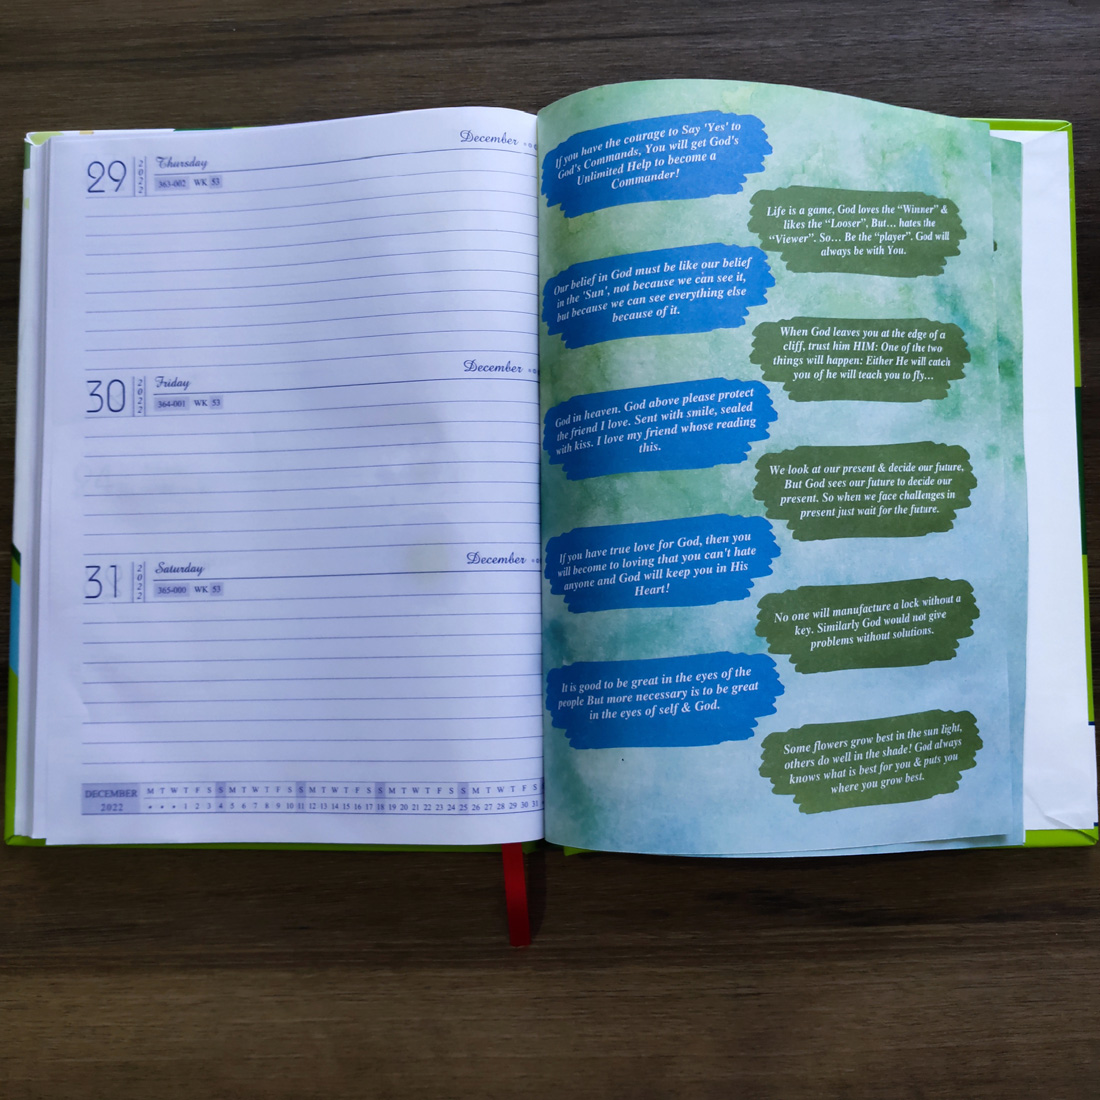 December
29 2022 Thursday
363-002 WK 53
December
30 2022 Friday
364-001 WK 53
December
31 2022 Saturday
365-000 WK 53
DECEMBER M T W T F S S M T W T F S S M T W T F S S M T W T F S S M T W T F S
2022 • • • 1 2 3 4 5 6 7 8 9 10 11 12 13 14 15 16 17 18 19 20 21 22 23 24 25 26 27 28 29 30 31
If you have the courage to Say 'Yes' to
God's Commands, You will get God's
Unlimited Help to become a
Commander!
Life is a game, God loves the “Winner” &
likes the “Looser”, But... hates the
“Viewer”. So... Be the “player”. God will
always be with You.
Our belief in God must be like our belief
in the 'Sun', not because we can see it,
but because we can see everything else
because of it.
When God leaves you at the edge of a
cliff, trust him HIM: One of the two
things will happen: Either He will catch
you of he will teach you to fly...
God in heaven. God above please protect
the friend I love. Sent with smile, sealed
with kiss. I love my friend whose reading
this.
We look at our present & decide our future,
But God sees our future to decide our
present. So when we face challenges in
present just wait for the future.
If you have true love for God, then you
will become to loving that you can't hate
anyone and God will keep you in His
Heart!
No one will manufacture a lock without a
key. Similarly God would not give
problems without solutions.
It is good to be great in the eyes of the
people But more necessary is to be great
in the eyes of self & God.
Some flowers grow best in the sun light,
others do well in the shade! God always
knows what is best for you & puts you
where you grow best.